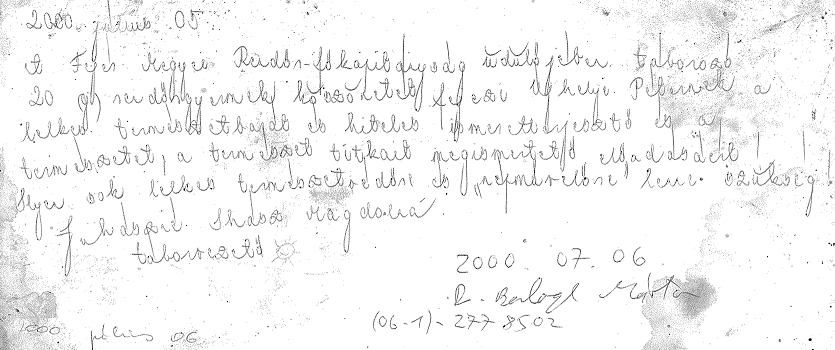 2000. július 05.
A Fejér Megyei Rendőr-főkapitányság üdülőjében táborozó
20 fő rendőrgyermek köszönetét fejezi Ujhelyi Péternek a
lelkes természetbarát és hiteles ismeretterjesztő és a
természetet, a természet titkait megismertető előadásáért!
Ilyen sok lelkes természetvédőre és "népművelőre" lenne szükség!
Juhászné Magdolna
táborvezető
2000. 07. 06
Balogh Márta
(06-1)-277 8502
2000 július 06